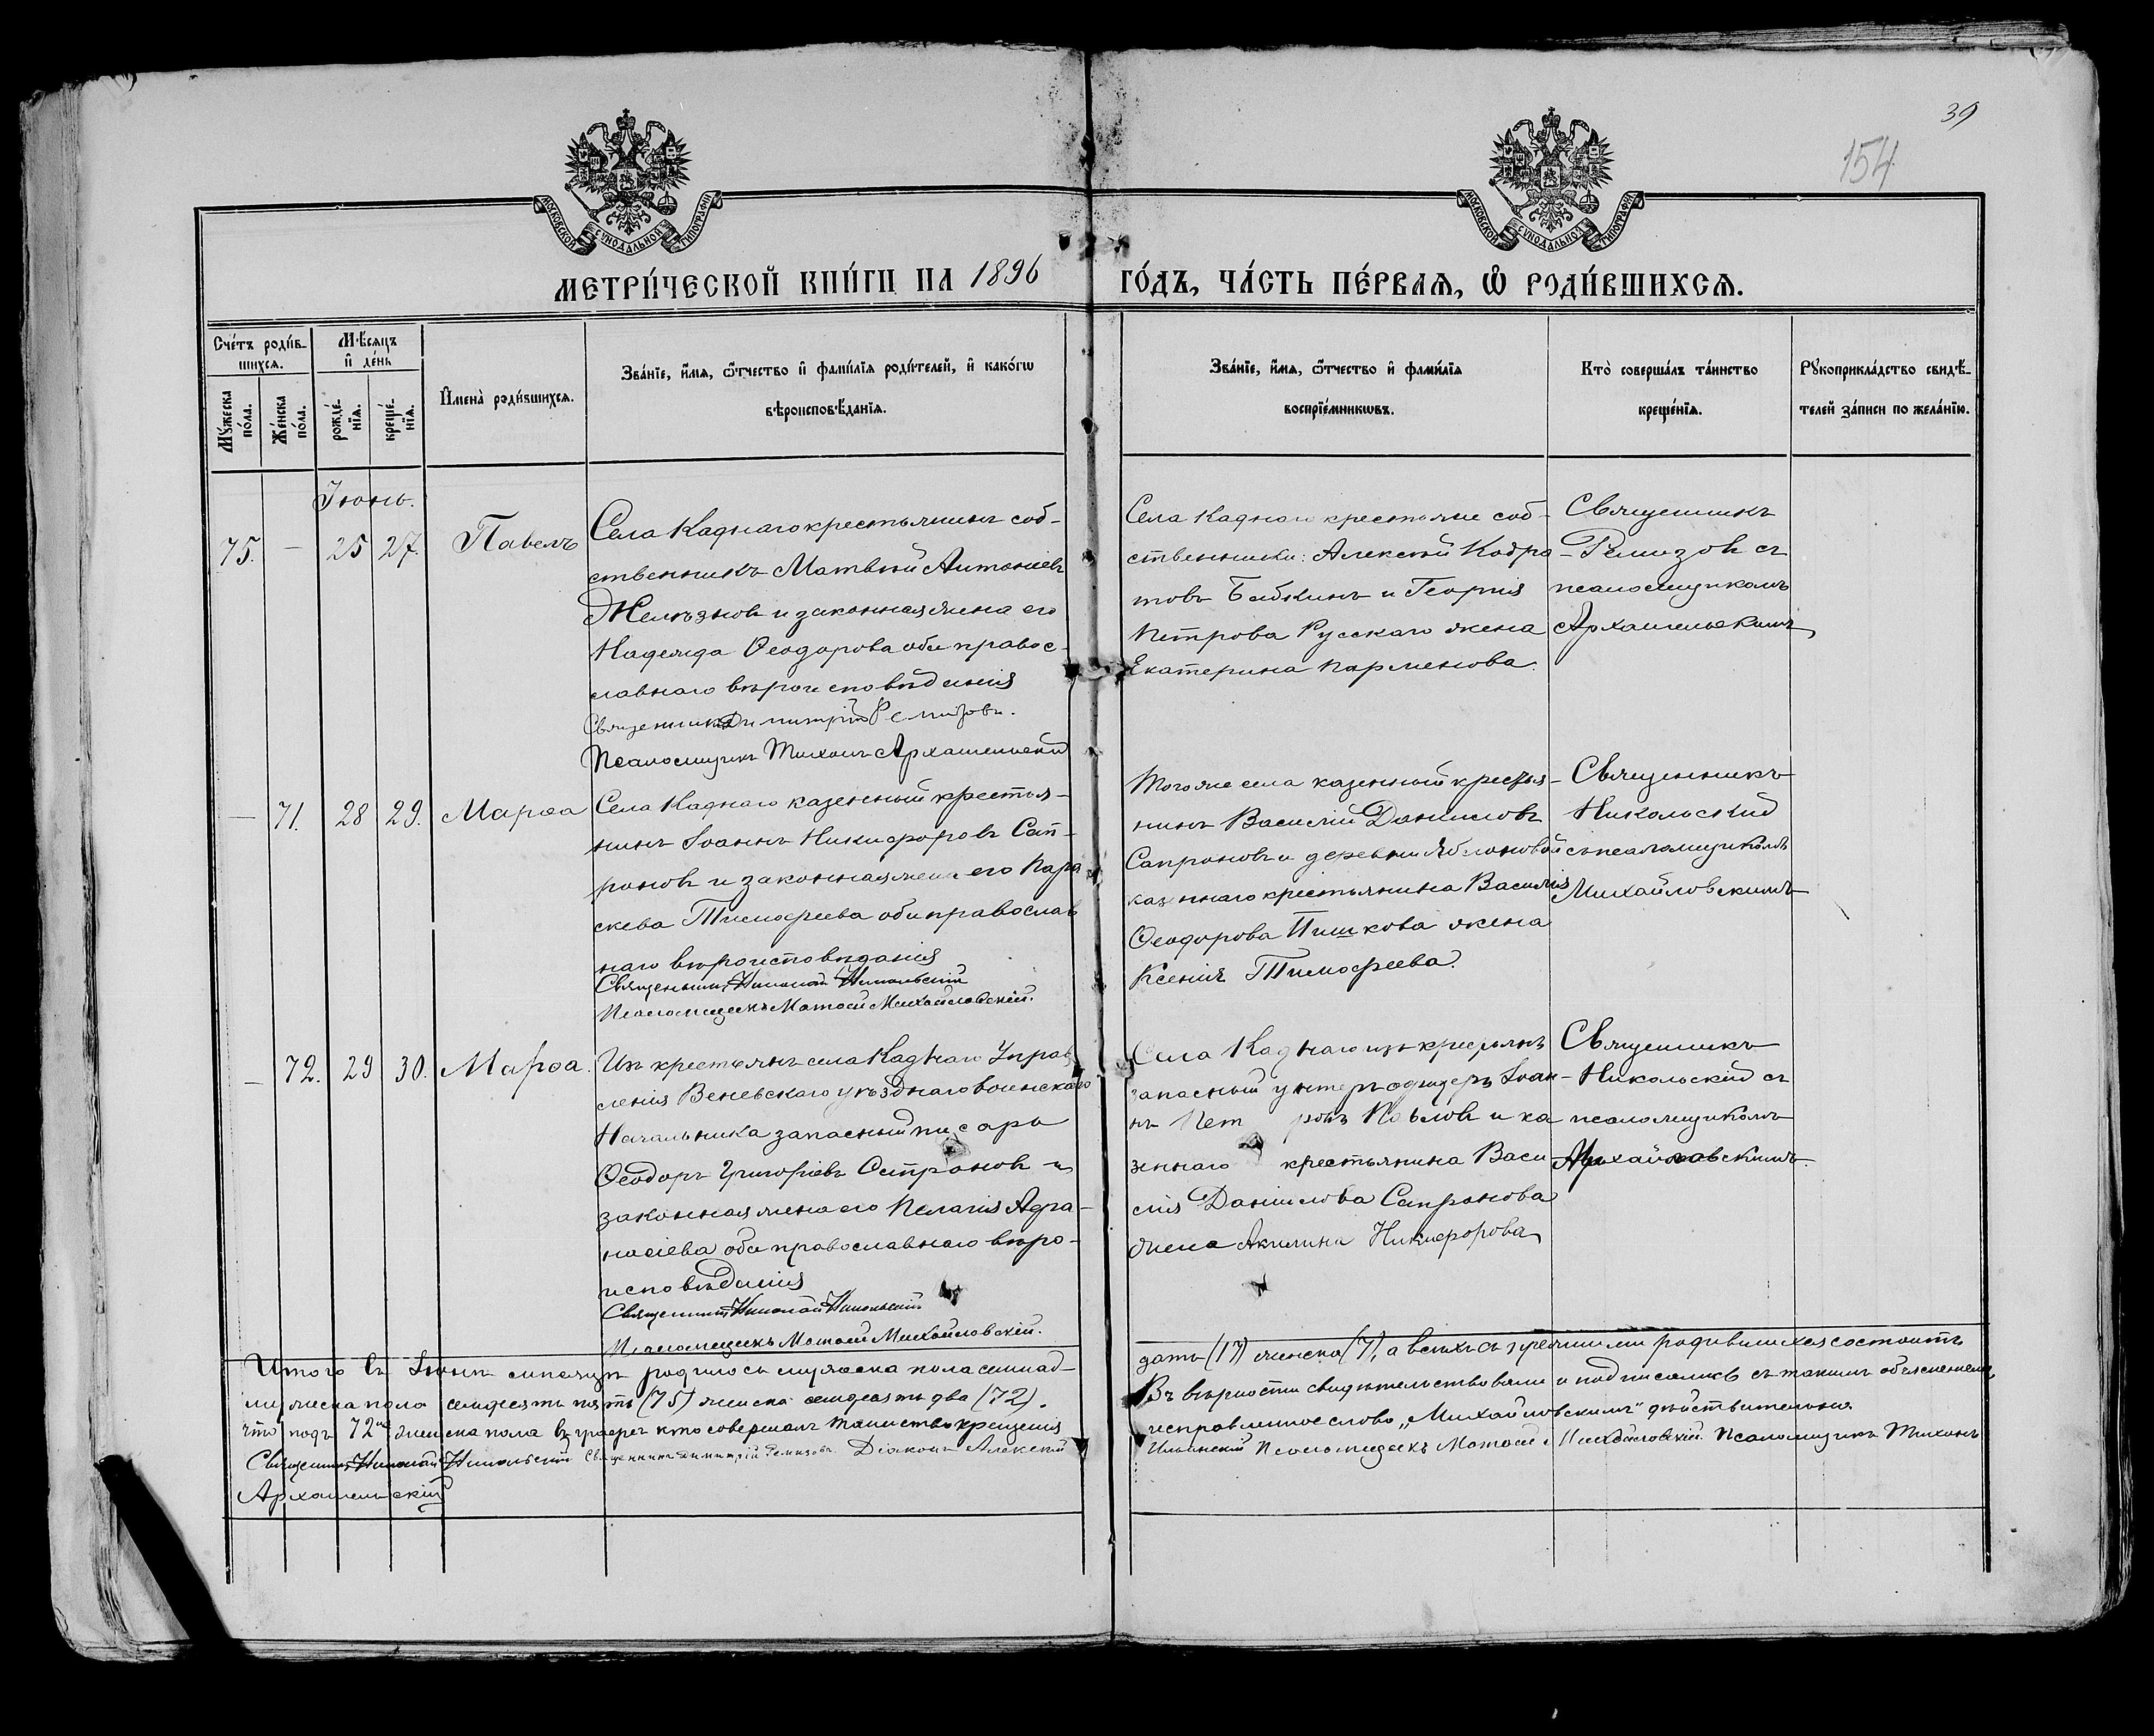 39
154
МОСКОВСКОЙ СѴНОДАЛЬНОЙ ТИПОГРАФІИ
МОСКОВСКОЙ СѴНОДАЛЬНОЙ ТИПОГРАФІИ
МЕТРИ́ЧЕСКОЙ КНИ́ГИ НА 1896 ГО́ДЪ, ЧА́СТЬ ПЕ́РВАѦ, Ѽ РОДИ́ВШИХСѦ.
Сче́тъ роди́в-
шихсѧ.
Мꙋ́жеска по́ла.
Же́нска по́ла.
Мѣ́сѧцъ
и҆ де́нь
рожде́-
нїѧ.
креще́-
нїѧ.
И҆мена̀ роди́вшихсѧ.
Зва́нїе, и҆́мѧ, ѻ҆́тчество и҆ фами́лїѧ роди́телей, и҆ како́гѡ
вѣроисповѣ́данїѧ.
Зва́нїе, и҆́мѧ, ѻ҆́тчество и҆ фами́лїѧ
воспрїе́мникѡвъ.
Кто̀ соверша́лъ та́инство
креще́нїѧ.
Рꙋкоприкла́дство свидѣ́-
телей за́писи по жела́нїю.
Іюнь.
75. — 25 27. Павелъ
Села Каднаго крестьянинъ соб-
ственникъ Матвѣй Антоніевъ
и законная жена его
Надежда Ѳеодорова оба правос-
лавнаго вѣроисповѣданія
Священникъ Димитрій Ремизовъ.
Псаломщикъ Тихонъ Архангельскій
Села Каднаго крестьяне соб-
ственники: Алексѣй Кодра-
товъ Бабкинъ и Георгія
Петрова Русскаго жена
Екатерина Парменова.
Священникъ
Ремизовъ съ
псаломщикомъ
Архангельскимъ
— 71. 28 29. Марѳа
Села Каднаго казенный крестья-
нинъ Іоаннъ Никифоровъ Сап-
роновъ и законная жена его Пара
скева Тимофеева оба православ
наго вѣроисповѣданія
Священникъ Николай Никольскій
Псаломщикъ Матѳей Михайловскій.
Того же села казенный крестья-
нинъ Василій Даниловъ
Сапроновъ и деревни Яблоновой
казеннаго крестьянина Василія
Ѳеодорова Пишкова жена
Ксенія Тимофеева.
Священникъ
Никольскій
съ псаломщикомъ
Михайловскимъ
— 72. 29 30. Марѳа.
Изъ крестьянъ села Каднаго Управ
ленія Веневскаго уѣзднаго воинскаго
Начальника запасный писарь
Ѳеодоръ Григоріевъ Сапроновъ и
законная жена его Пелагія Аѳа-
насіева оба православнаго вѣро-
исповѣданія
Священникъ Николай Никольскій
Псаломщикъ Матѳей Михайловскій.
Села Каднаго изъ крестьянъ
запасный унтеръ-офицеръ Іоан-
нъ Петровъ и ка
зеннаго крестьянина Васи-
лія Данилова Сапронова
жена Акилина Никифорова
Священникъ
Никольскій съ
псаломщикомъ
Михайловскимъ.
Итого въ Іюнѣ мѣсяцѣ родилось мужеска пола семнад-
дать (17) женска (7), а всѣхъ съ прежними родившихся состоитъ
мужеска пола семдесять пять (75) женска семдесять два (72).
Въ вѣрности свидѣтельствовали и подписались съ такимъ объясненіемъ,
что подъ 72мъ женска пола въ графѣ кто совершалъ таинство крещенія
исправленное слово „Михайловскимъ“ дѣйствительно.
Священникъ Николай Никольскій Священникъ Димитрій Ремизовъ. Діаконъ Алексѣй
Ильинскій Псаломщикъ Матѳей Михайловскій. Псаломщикъ Тихонъ
Архангельскій